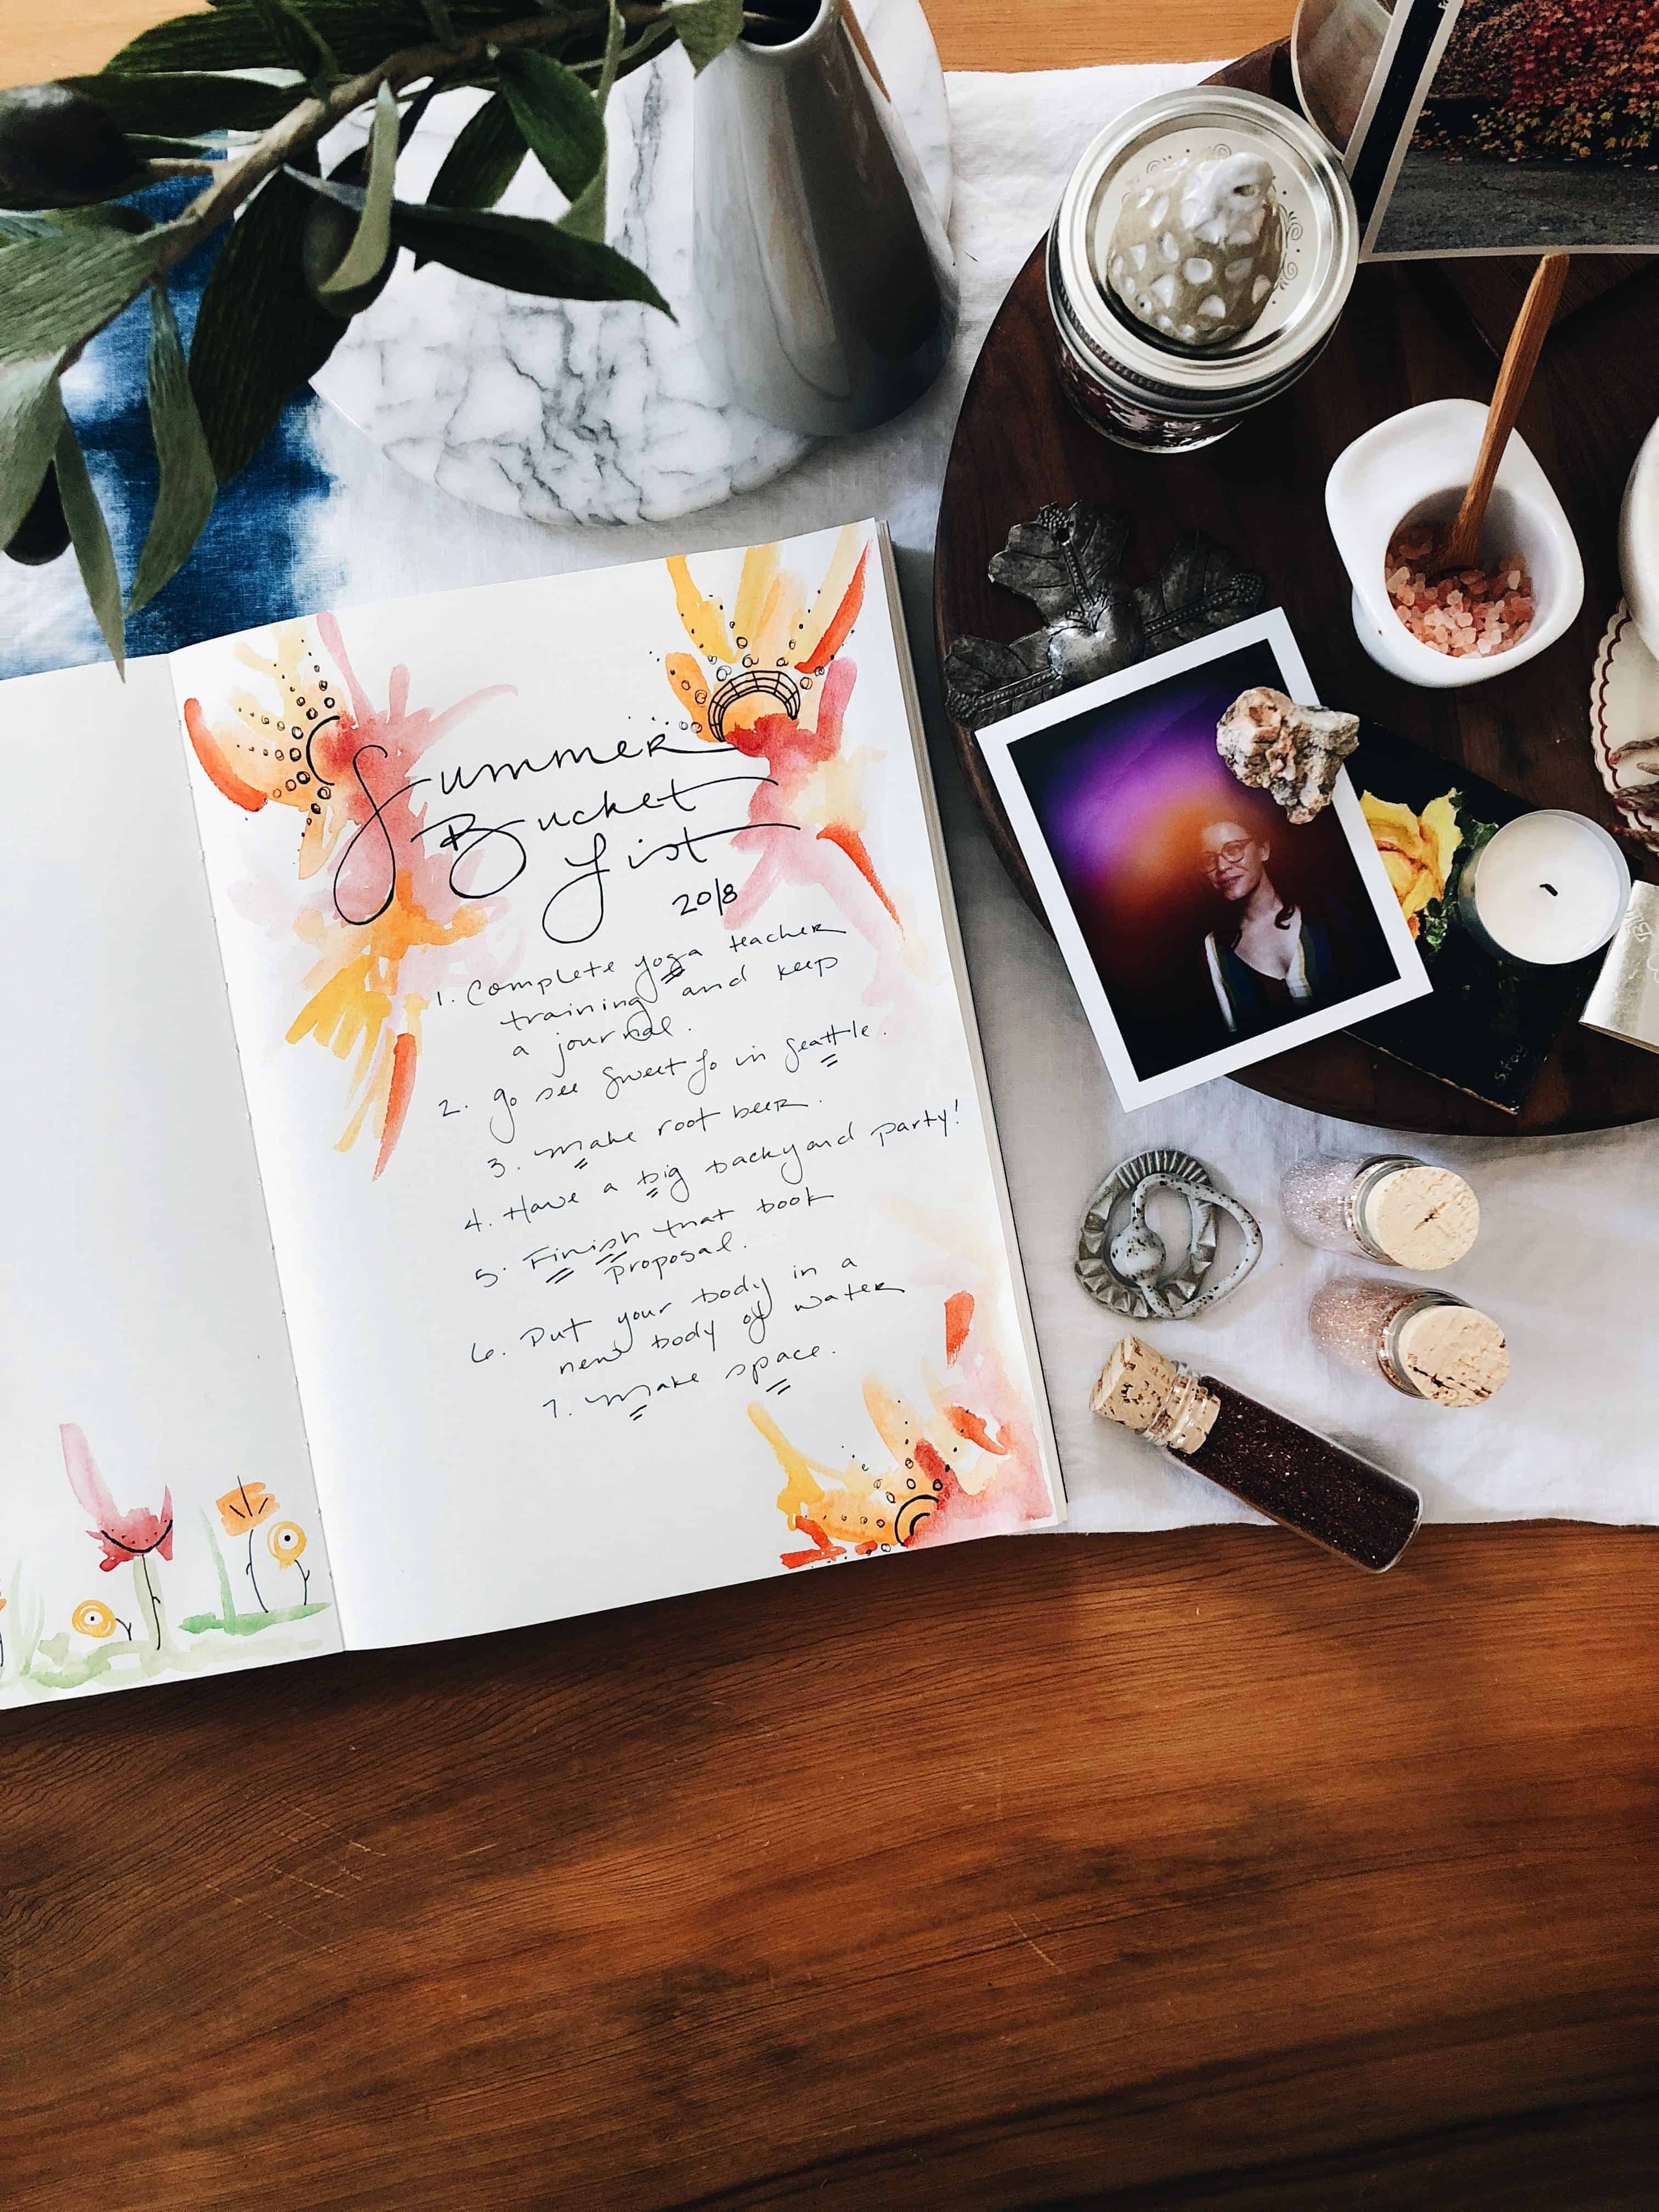 Summer
Bucket
List
2018
1. Complete yoga teacher
training and keep
a journal.
2. go see Sweet Jo in Seattle.
3. make root beer.
4. Have a big backyard party!
5. Finish that book
proposal.
6. Put your body in a
new body of water
7. make space.